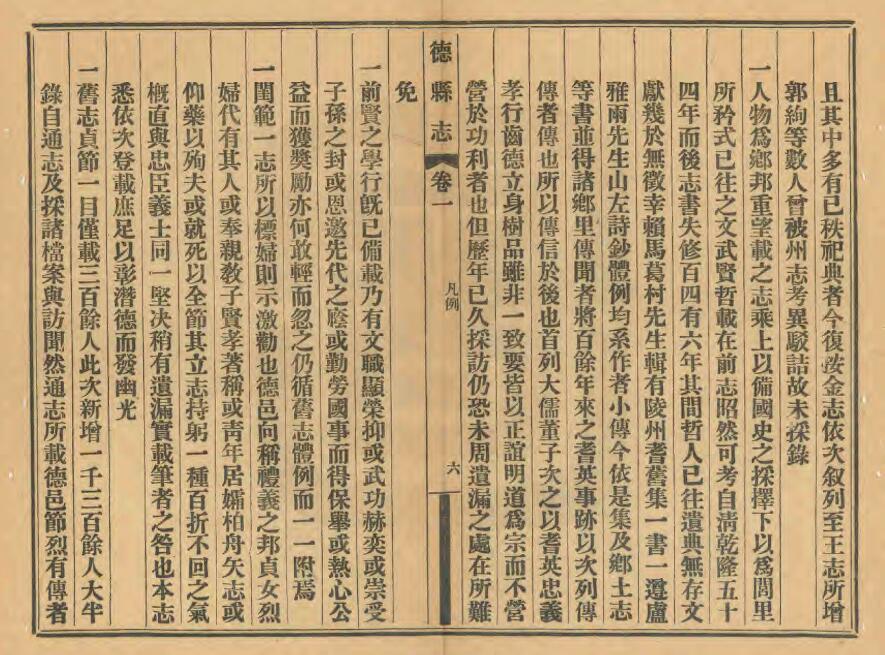 且其中多有已秩祀典者今復按金志依次叙列至王志所增
郭絢等數人曾被州志考異駁詰故未採錄
一人物爲鄉邦重望載之志乘上以備國史之採擇下以爲閭里
所矜式已往之文武賢哲載在前志昭然可考自清乾隆五十
四年而後志書失修百四有六年其間哲人已往遺典無存文
獻幾於無徵幸賴馬葛村先生輯有陵州耆舊集一書一遵盧
雅雨先生山左詩鈔體例均系作者小傳今依是集及鄉土志
等書並得諸鄉里傳聞者將百餘年來之耆英事跡以次列傳
傳者傳也所以傳信於後也首列大儒董子次之以耆英忠義
孝行齒德立身樹品雖非一致要皆以正誼明道爲宗而不營
營於功利者也但歷年已久採訪仍恐未周遺漏之處在所難
免
德縣志 卷一 凡例 六
一前賢之學行旣已備載乃有文職顯榮抑或武功赫奕或崇受
子孫之封或恩邀先代之廕或勤勞國事而得保舉或熱心公
益而獲獎勵亦何敢輕而忽之仍循舊志體例而一一附焉
一閨範一志所以標婦則示激勸也德邑向稱禮義之邦貞女烈
婦代有其人或奉親敎子賢孝著稱或靑年居孀柏舟矢志或
仰藥以殉夫或就死以全節其立志持躬一種百折不回之氣
槪直與忠臣義士同一堅决稍有遺漏實載筆者之咎也本志
悉依次登載庶足以彰潛德而發幽光
一舊志貞節一目僅載三百餘人此次新增一千三百餘人大半
錄自通志及採諸檔案與訪聞然通志所載德邑節烈有傳者